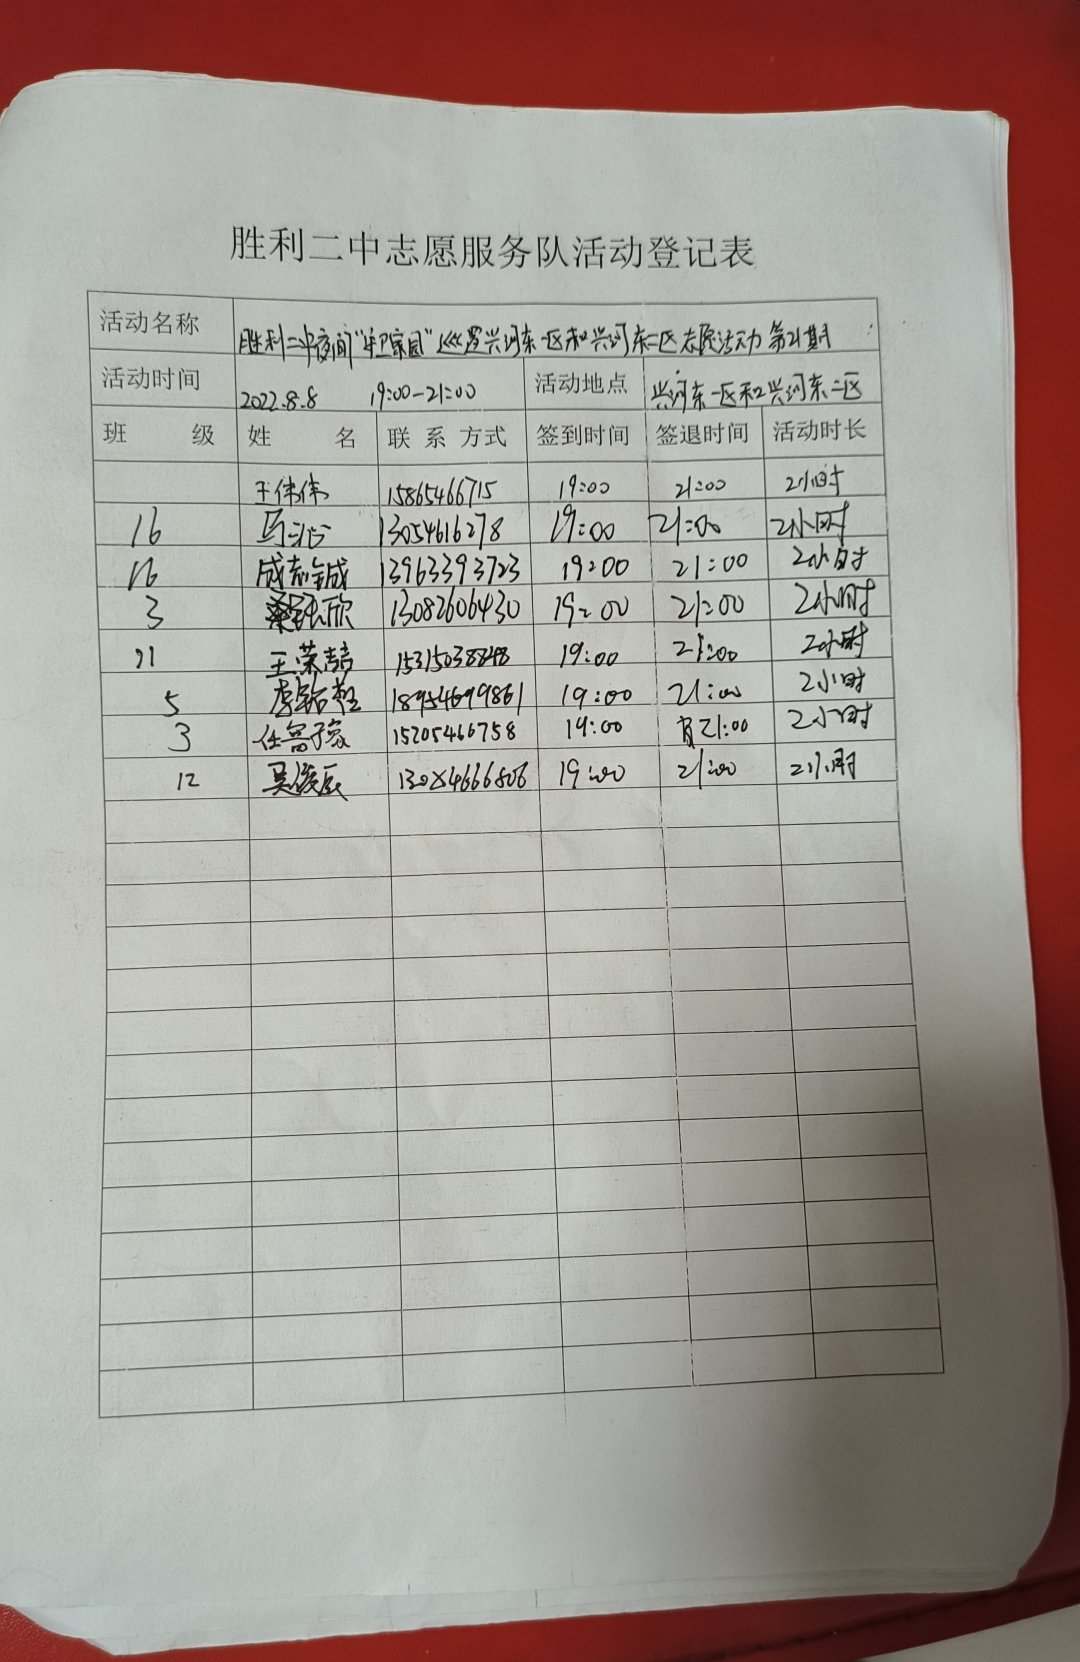 胜利二中志愿服务队活动登记表
活动名称 胜利二中夜间"守卫家园"巡逻兴河东一区和兴河东二区志愿活动 第21期
活动时间 2022.8.8 19:00-21:00 活动地点 兴河东一区和兴河东二区
班 级 姓 名 联系方式 签到时间 签退时间 活动时长
王伟伟 15865466715 19:00 21:00 2小时
16 马 13054616278 19:00 21:00 2小时
16 成志铖 13963393723 19:00 21:00 2小时
3 欣 13082606430 19:00 21:00 2小时
王荣喆 19:00 21:00 2小时
5 李 18954699861 19:00 21:00 2小时
3 任 15205466758 19:00 21:00 2小时
12 吴俊辰 19:00 21:00 2小时